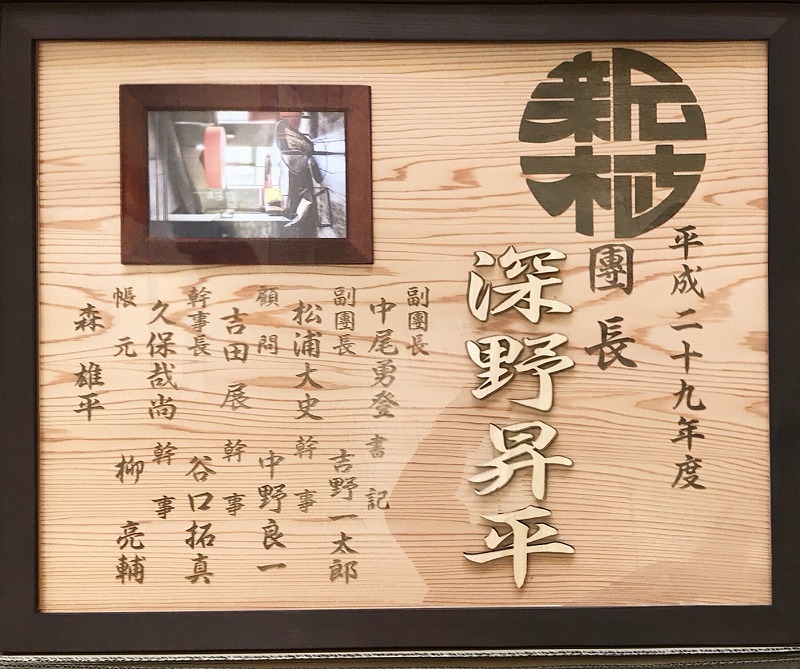 新村
平成二十九年度
團長
深野昇平
副團長
中尾勇登
副團長
松浦大史
顧問
吉田展
幹事長
久保哉尚
帳元
森雄平
書記
吉野一太郎
幹事
中野良一
幹事
谷口拓真
幹事
柳亮輔